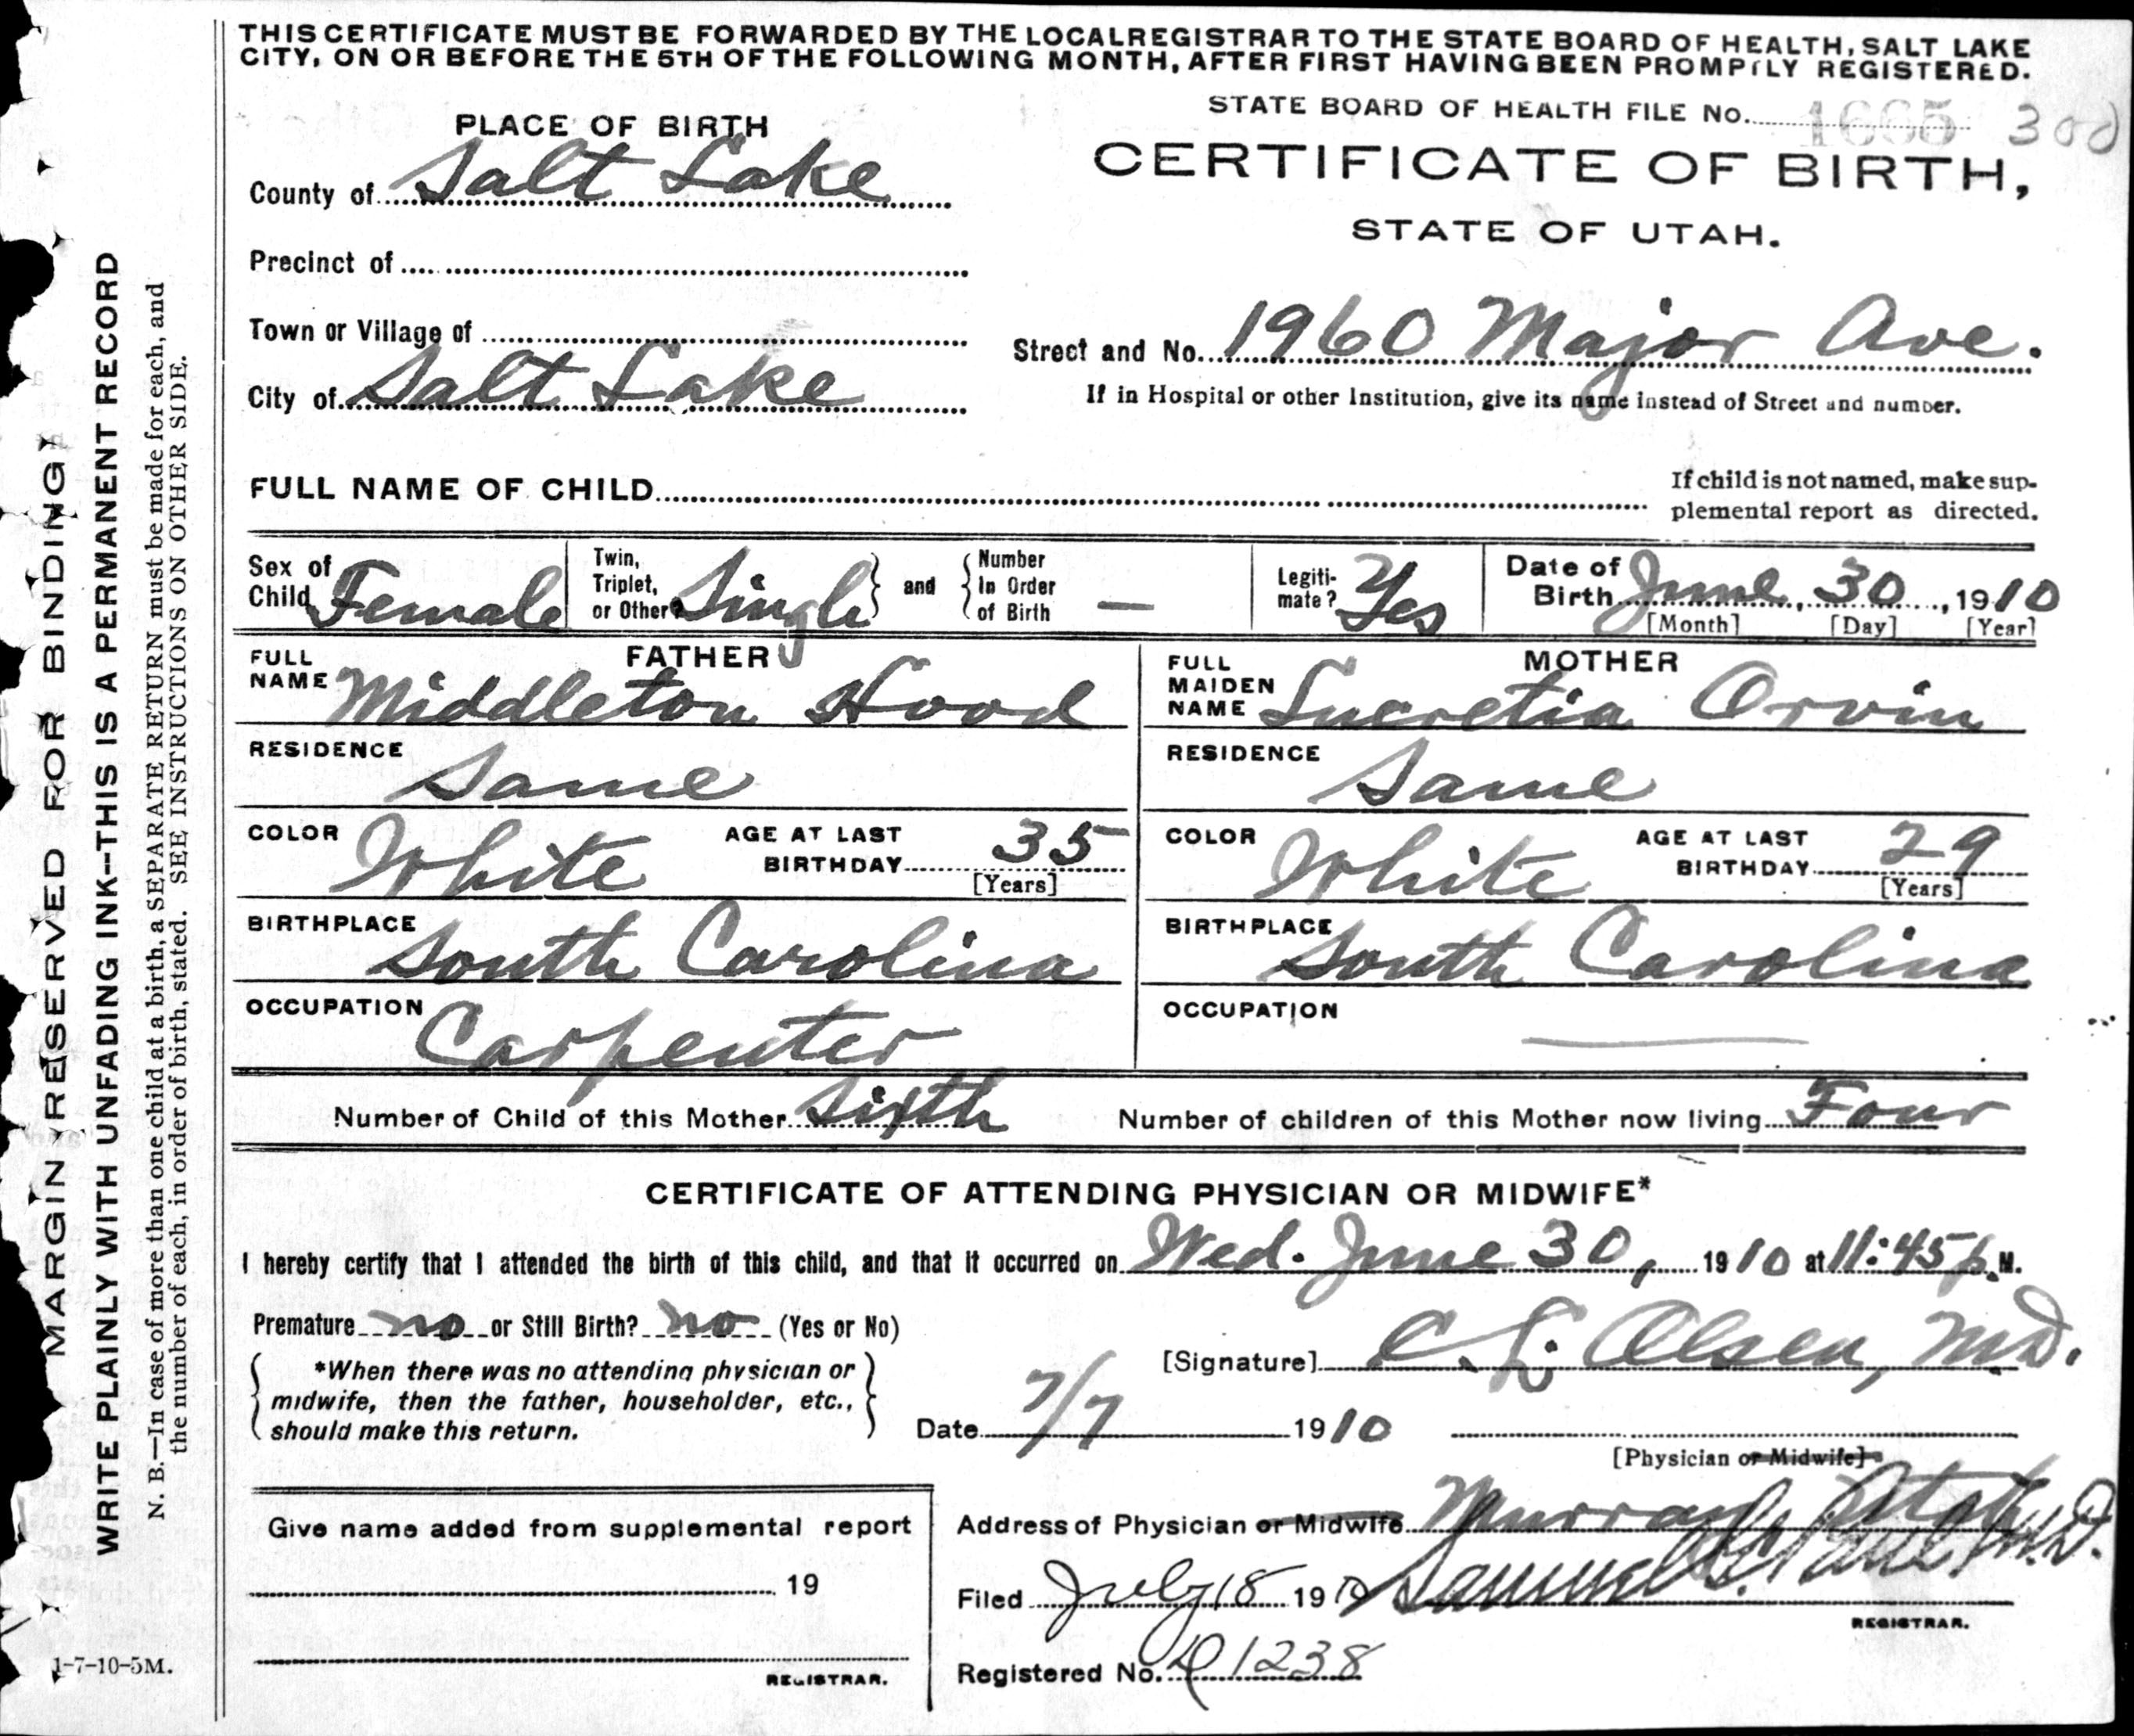 THIS CERTIFICATE MUST BE FORWARDED BY THE LOCAL REGISTRAR TO THE STATE BOARD OF HEALTH, SALT LAKE
CITY, ON OR BEFORE THE 5TH OF THE FOLLOWING MONTH, AFTER FIRST HAVING BEEN PROMPTLY REGISTERED.
STATE BOARD OF HEALTH FILE No. 1665 300
PLACE OF BIRTH
CERTIFICATE OF BIRTH,
County of Salt Lake
STATE OF UTAH.
Precinct of
Town or Village of
Street and No. 1960 Major Ave.
City of Salt Lake
If in Hospital or other Institution, give its name instead of Street and number.
FULL NAME OF CHILD
If child is not named, make sup-
plemental report as directed.
Sex of Child Female
Twin, Triplet, or Other? Single and Number In Order of Birth —
Legiti-mate? Yes
Date of Birth June, 30, 1910
[Month] [Day] [Year]
FATHER
FULL NAME Middleton Hood
RESIDENCE Same
COLOR White AGE AT LAST BIRTHDAY 35
[Years]
BIRTHPLACE South Carolina
OCCUPATION Carpenter
MOTHER
FULL MAIDEN NAME Lucretia Orvin
RESIDENCE Same
COLOR White AGE AT LAST BIRTHDAY 29
[Years]
BIRTHPLACE South Carolina
OCCUPATION —
Number of Child of this Mother Sixth Number of children of this Mother now living Four
CERTIFICATE OF ATTENDING PHYSICIAN OR MIDWIFE*
I hereby certify that I attended the birth of this child, and that it occurred on Wed. June 30, 1910 at 11:45 p. M.
Premature no or Still Birth? no (Yes or No)
*When there was no attending physician or
midwife, then the father, householder, etc.,
should make this return.
[Signature] C. L. Olsen, M.D.
Date 7/7 1910
[Physician or Midwife]
Give name added from supplemental report
19
REGISTRAR.
Address of Physician or Midwife Murray Utah
Filed July 18 1910 Samuel G. Paul M.D.
REGISTRAR.
Registered No. D1238
MARGIN RESERVED FOR BINDING
WRITE PLAINLY WITH UNFADING INK--THIS IS A PERMANENT RECORD
N. B.—In case of more than one child at a birth, a SEPARATE RETURN must be made for each, and
the number of each, in order of birth, stated. SEE INSTRUCTIONS ON OTHER SIDE.
1-7-10-5M.